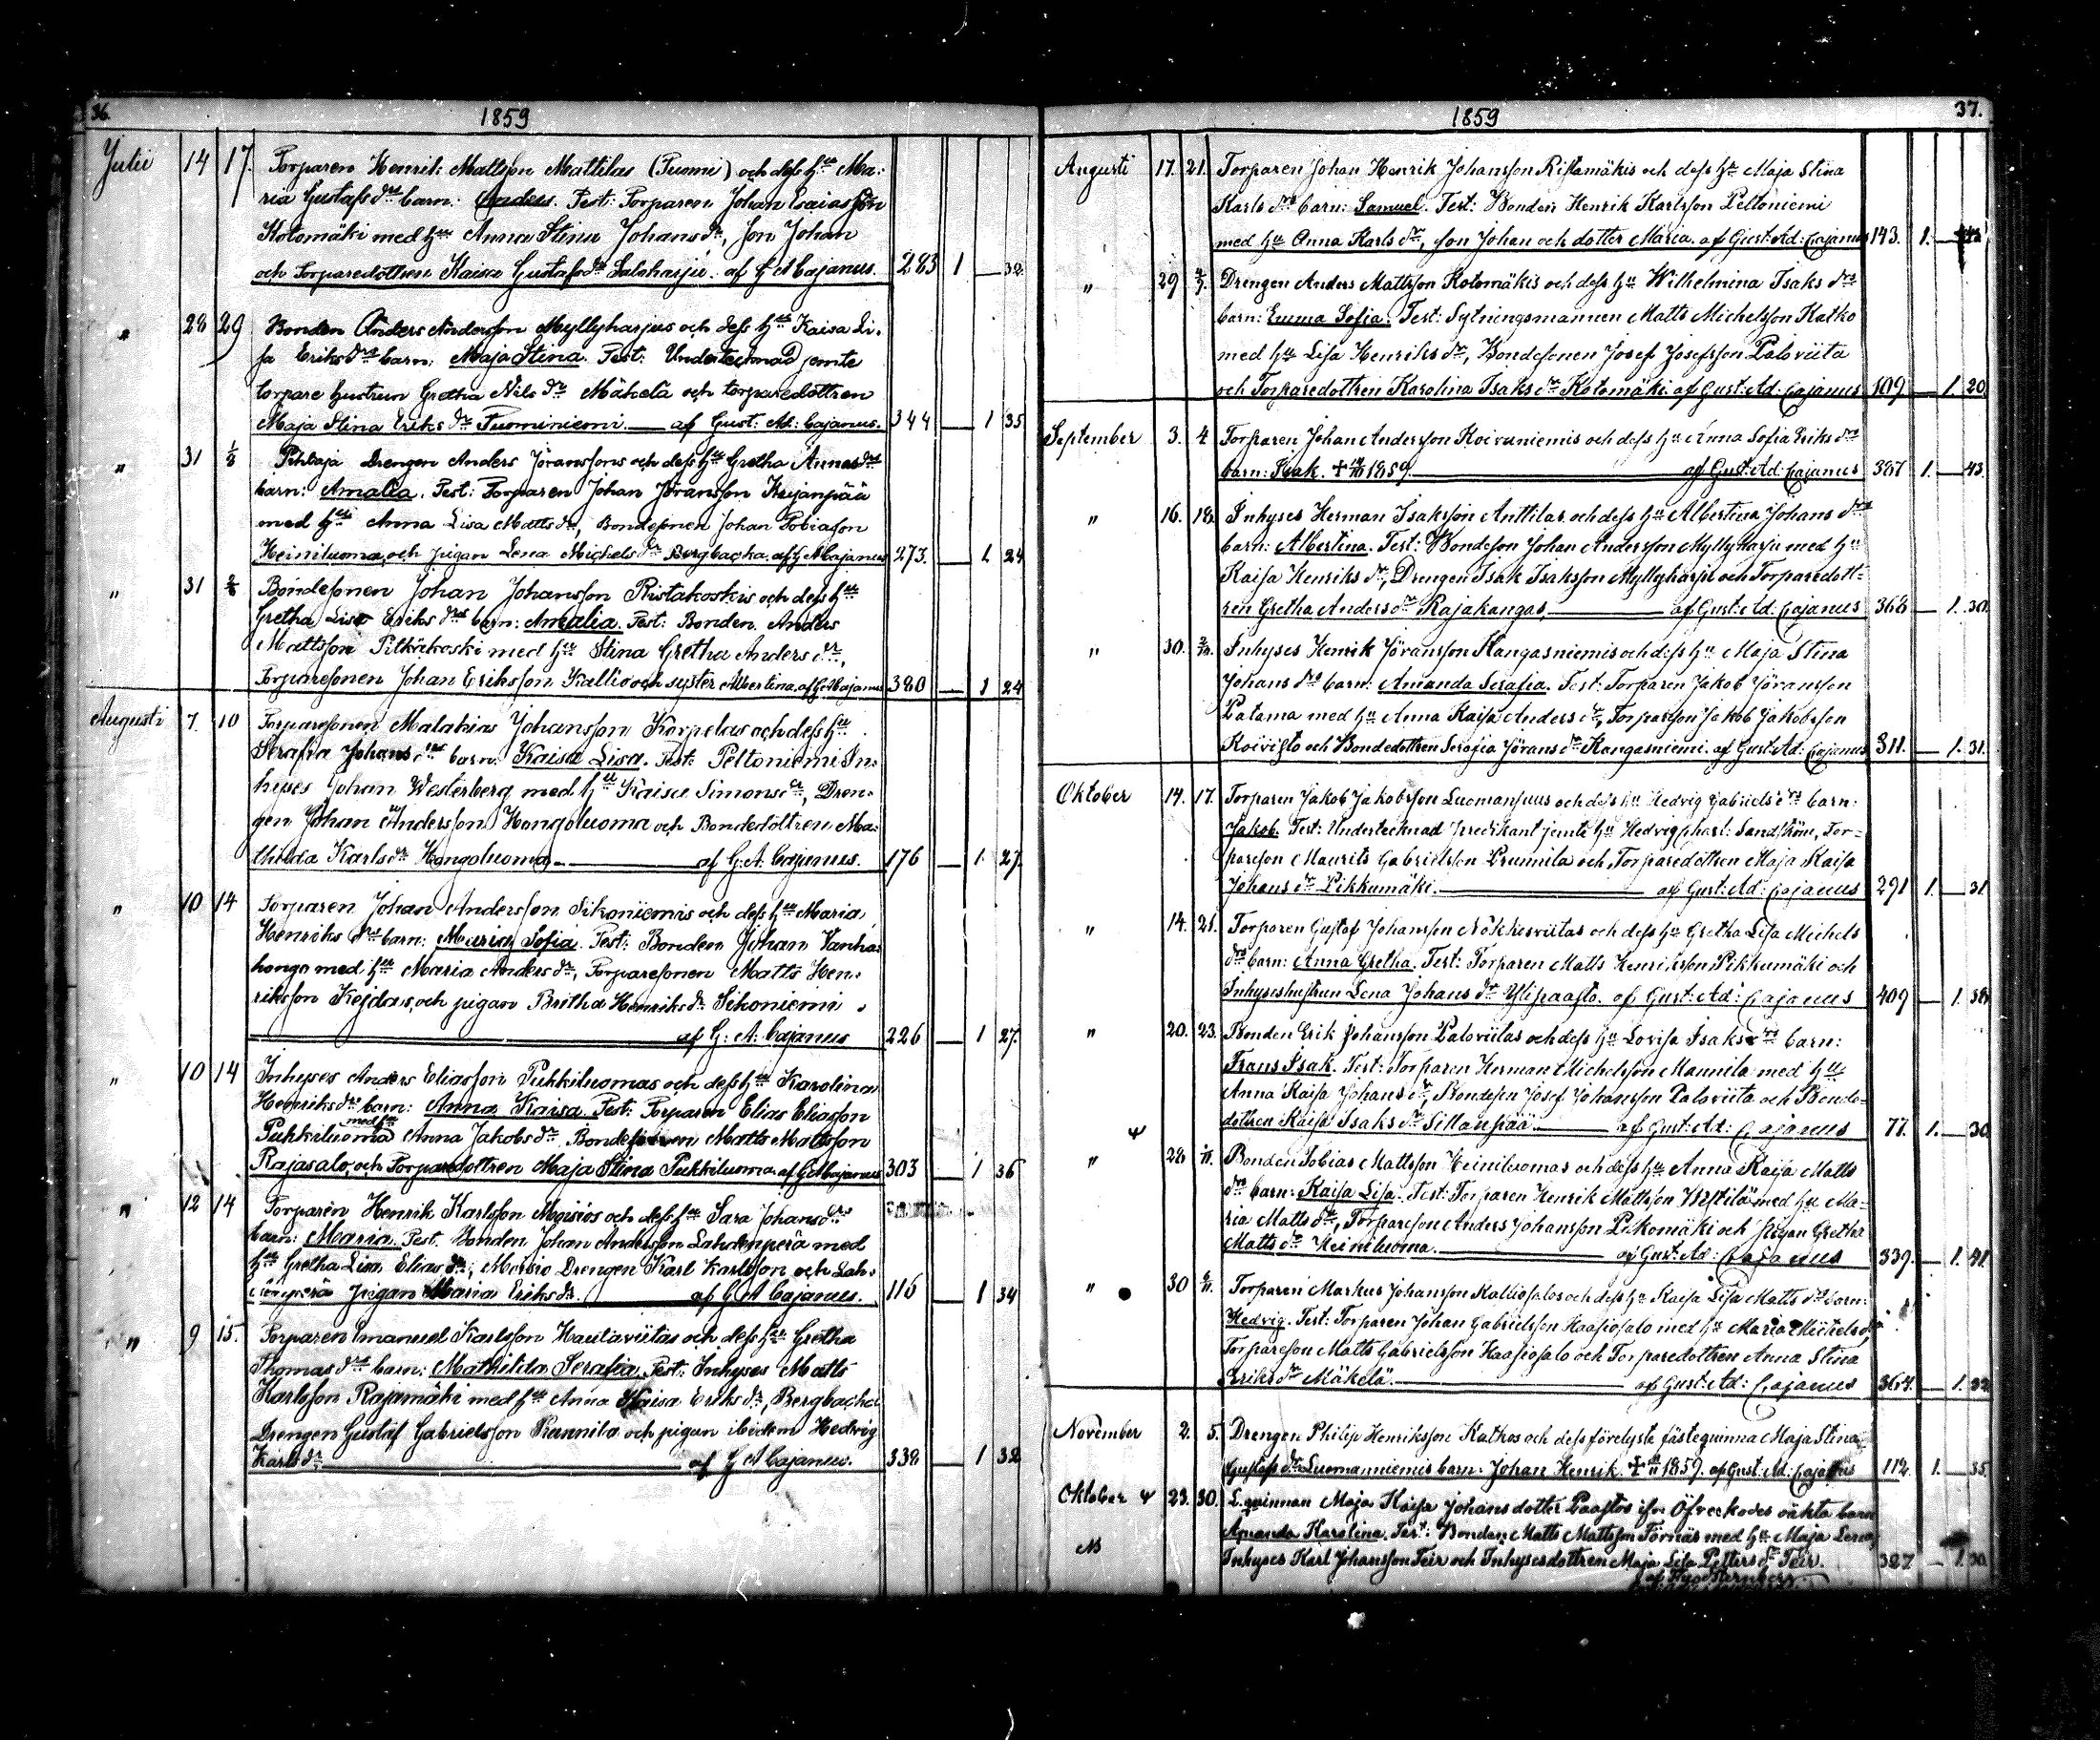 36.
1859
Julii 14 17. Torparen Henrik Mattsson Mattilas (Tuomi) och dess hu Ma-
ria Gustafs drs barn: Anders. Test: Torparen Johan Esaiasson
Kotomäki med hu Anna Stina Johans dr, Son Johan
och Torparedottren Kaisa Gustafs dr Saloharju. af G A Cajanus. 283 1 — 32
" 28 29 Bonden Anders Andersson Myllyharjus och dess hu Kaisa Li-
sa Eriks drs barn: Maja Stina. Test: Undertecknad jemte
torpare hustrun Gretha Nils dr Mäkelä och torparedottren
Maja Stina Eriks dr Tuominiemi. — af Gust: Ad: Cajanus. 344 — 1 35
" 31 1/8 Drengen Anders Jöranssons och dess hu Gretha Annas drs
barn: Amalia. Test: Torparen Johan Jöransson Keijanpää
med hu Anna Lisa Matts dr, Bondesonen Johan Tobiasson
Heiniluoma, och pigan Lena Michels dr Bergbacka. af G A Cajanus 273. — 1 24
" 31 2/8 Bondesonen Johan Johansson Ristakoskis och dess hu
Gretha Lisa Eriks drs barn: Amalia. Test: Bonden Anders
Mattsson Pitkäkoski med hu Stina Gretha Anders dr,
Torparesonen Johan Eriksson Kallio och syster Albertina. af G A Cajanus 380 — 1 24
Augusti 7. 10 Torparesonen Malakias Johansson Korpelas och dess hu
Serafia Johans drs barn: Kaisa Lisa. Test: Peltoniemi In-
hyses Johan Westerberg med hu Kaisa Simons dr, Dren-
gen Johan Andersson Hongoluoma och Bondedottren Ma-
thilda Karls dr Hongoluoma — af G: A: Cajanus. 176 — 1. 27.
" 10 14 Torparen Johan Andersson Sikoniemis och dess hu Maria
Henriks drs barn: Maria Sofia. Test: Bonden Johan Vanha-
honga med hu Maria Anders dr, Torparesonen Matts Hen-
riksson Kejdas, och pigan Britha Henriks dr Sikoniemi
— af G: A: Cajanus 226 — 1 27.
" 10 14 Inhyses Anders Eliasson Puhkiluomas och dess hu Karolina
Henriks drs barn: Anna Kaisa. Test: Torparen Elias Eliasson
Puhkiluoma med hu Anna Jakobs dr, Bondesonen Matts Mattsson
Rajasalo, och Torparedottren Maja Stina Puhkiluoma. af G A Cajanus 303 — 1 36
" 12 14 Torparen Henrik Karlsson och dess hu Sara Johans drs
barn: Maria. Test. Bonden Johan Andersson Lahdenperä med
hu Gretha Lisa Elias dr, Drengen Karl Karlsson och Lah-
denperä Pigan Maria Eriks dr. — af G A Cajanus. 116 — 1 34
" 9 15. Torparen Emanuel Karlsson Hautaviitas och dess hu Gretha
Thomas drs barn: Mathilda Serafia. Test: Inhyses Matts
Karlsson Rajamäki med hu Anna Kaisa Eriks dr, Bergbacka
Drengen Gustaf Gabrielsson Prunnila och pigan ibidem Hedvig
Karls dr — af G A Cajanus. 338 — 1 32
37.
1859
Augusti 17. 21. Torparen Johan Henrik Johansson Ristamäkis och dess hu Maja Stina
Karls drs barn: Samuel. Test: Bonden Henrik Karlsson Peltoniemi
med hu Anna Karls dr, son Johan och dotter Maria. af Gust: Ad: Cajanus 143. 1. —
" 29 4/9. Drengen Anders Mattsson Kotomäkis och dess hu Wilhelmina Isaks drs
barn: Emma Sofia. Test: Sytningsmannen Matts Michelsson Katko
med hu Lisa Henriks dr, Bondesonen Josef Josefsson Paloviita
och Torparedottren Karolina Isaks dr Kotomäki. af Gust: Ad: Cajanus 109 — 1. 20.
September 3. 4 Torparen Johan Andersson Koivuniemis och dess hu Anna Sofia Eriks drs
barn: Isak. 1859 — af Gust: Ad: Cajanus 387 1. — 43.
" 16. 18. Inhyses Herman Isaksson Anttilas och dess hu Albertina Johans drs
barn: Albertina. Test: Bondeson Johan Andersson Myllyharju med hu
Kaisa Henriks dr, Drengen Isak Isaksson Myllyharju och Torparedott-
ren Gretha Anders dr Rajakangas, — af Gust: Ad: Cajanus 368 — 1. 30.
" 30. 2/10. Inhyses Henrik Jöransson Kangasniemis och dess hu Maja Stina
Johans drs barn: Amanda Serafia. Test: Torparen Jakob Jöransson
Patama med hu Anna Kaisa Anders dr, Torpareson Jakob Jakobsson
Koivisto och Bondedottren Serafia Jörans dr Kangasniemi. af Gust: Ad: Cajanus 311. — 1. 31.
Oktober 14. 17. Torparen Jakob Jakobsson Luomansuus och dess hu Hedvig Gabriels drs barn:
Jakob. Test: Undertecknad Predikant jemte hu Hedvig Charl: Sandström, Tor-
pareson Maurits Gabrielsson Prunnila och Torparedottren Maja Kaisa
Johans dr Pikkumäki. — af Gust: Ad: Cajanus 291 1. — 31.
" 14. 21. Torparen Gustaf Johansson Nokkosviitas och dess hu Gretha Lisa Michels
drs barn: Anna Gretha. Test: Torparen Matts Henriksson Pikkumäki och
Inhyseshustrun Lena Johans dr Ylipaasto. af Gust: Ad: Cajanus 409 — 1. 38.
" 20. 23. Bonden Erik Johansson Paloviitas och dess hu Lovisa Isaks drs barn:
Frans Isak. Test: Torparen Herman Michelsson Mannila med hu
Anna Kaisa Johans dr, Bondeson Josef Johansson Paloviita och Bonde-
dottren Kaisa Isaks dr Sillanpää — af Gust: Ad: Cajanus 77. 1. — 30
" 28 1/11. Bonden Tobias Mattsson Heiniluomas och dess hu Anna Kaisa Matts
drs barn: Kaisa Lisa. Test: Torparen Henrik Mattsson med hu Ma-
ria Matts dr, Torpareson Anders Johansson Pikomäki och Pigan Gretha
Matts dr Heiniluoma. — af Gust: Ad: Cajanus 339. — 1. 41.
" 30 6/11. Torparen Markus Johansson Kalliosalos och dess hu Kaisa Lisa Matts drs barn:
Hedvig. Test: Torparen Johan Gabrielsson Haapiosalo med hu Maria Michels dr,
Torpareson Matts Gabrielsson Haapiosalo och Torparedottren Anna Stina
Eriks dr Mäkelä. — af Gust: Ad: Cajanus 364. — 1. 32
November 2. 5. Drengen Philip Henriksson Katkos och dess förelyste fästeqvinna Maja Stina
Gustafs dr Luomanniemis barn: Johan Henrik. 1859. af Gust: Ad: Cajanus 112. 1. — 35.
Oktober 23. 30. L. qvinnan Maja Kaisa Johans dotter Paastos ifrån Öfverkodes oäkta barn
Amanda Karolina. Test: Bonden Matts Mattsson Förnäs med hu Maja Lena,
Inhyses Karl Johansson Teir och Inhysesdottren Maja Lisa Petters dr Teir. 327 — 1. 30.